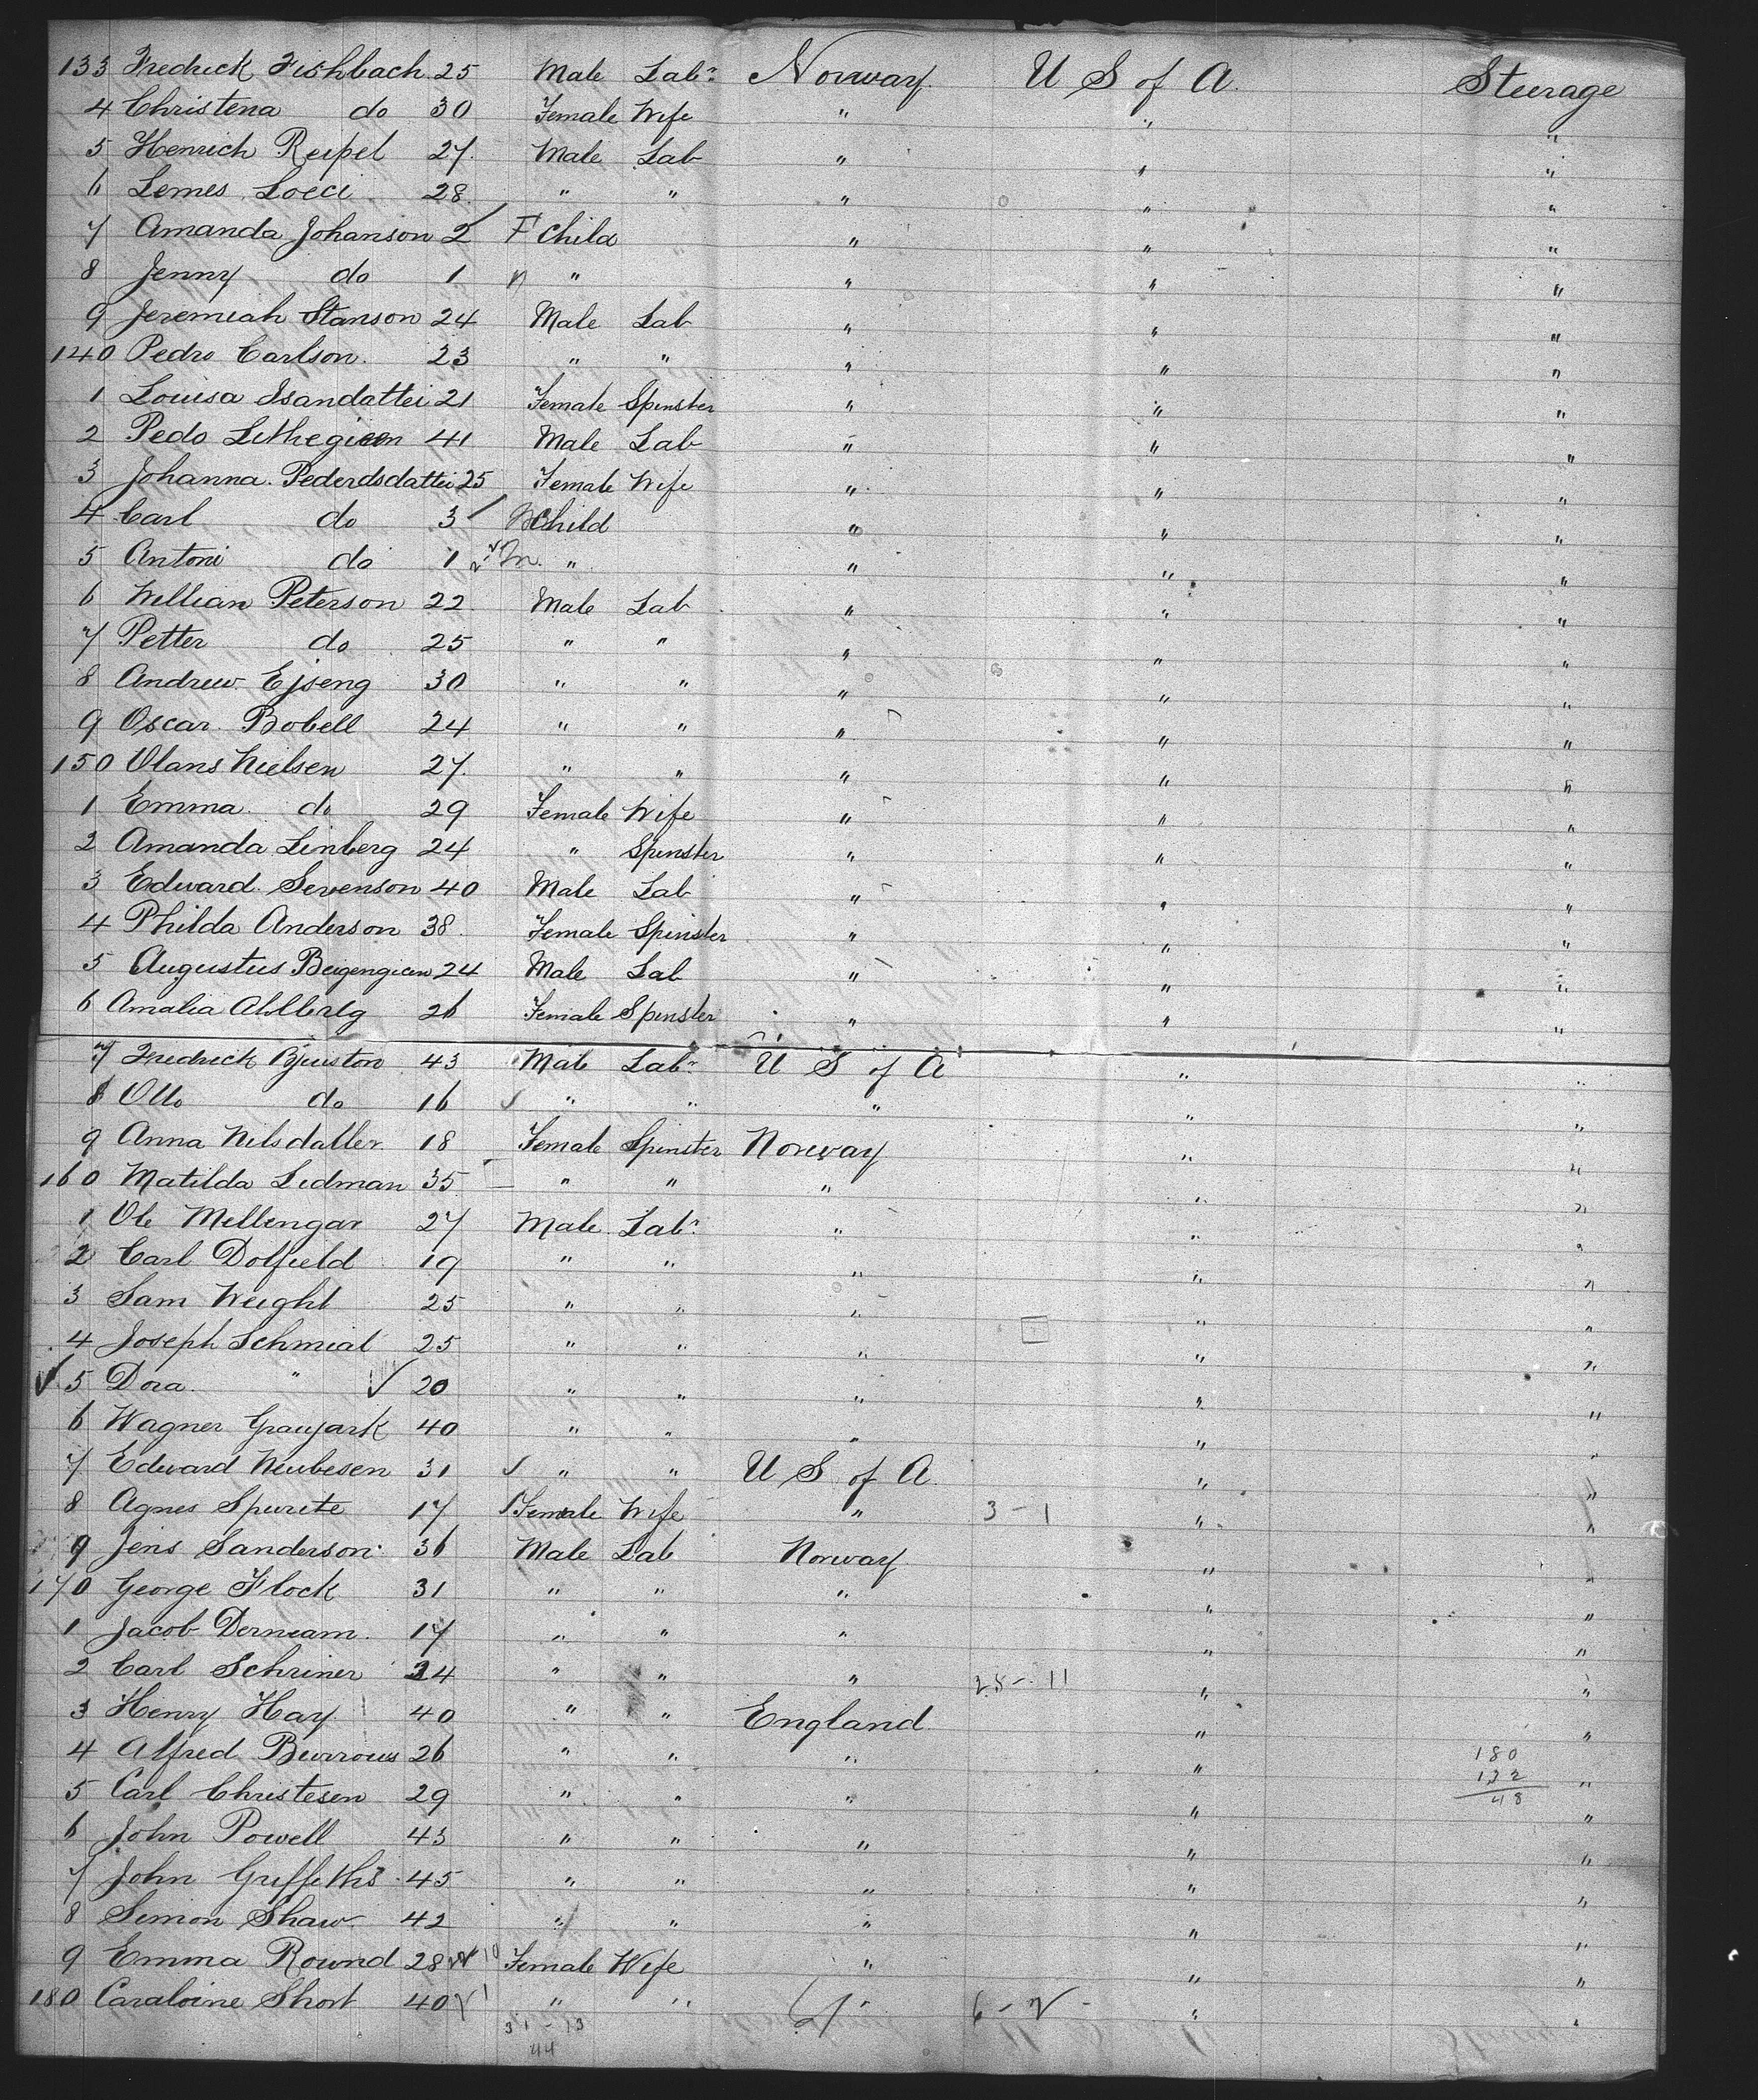 133 Fredrick Fishbach 25 Male Labr Norway. U S of A. Steerage
4 Christena do 30 Female Wife " " "
5 Henrich Reipel 27. Male Lab " " "
6 Lemes Loeci 28. " " " " "
7 Amanda Johanson 2 F Child " " "
8 Jenny do 1 " " " " "
9 Jeremiah Stanson 24 Male Lab " " "
140 Pedro Carlson. 23 " " " " "
1 Louisa Isandattei 21 Female Spinster " " "
2 Pedo 41 Male Lab " " "
3 Johanna. Pederdsdattei 25 Female Wife " " "
4 Carl do 3 Child " " "
5 Antoni do 1 m. " " " "
6 Wellian Peterson 22 Male Lab " " "
7 Petter do 25 " " " " "
8 Andrew Ejseng 30 " " " " "
9 Oscar. Bobell 24 " " " " "
150 Olans Nielsen 27. " " " " "
1 Emma. do 29 Female Wife " " "
2 Amanda Linberg 24 " Spinster " " "
3 Edward. Sevenson 40 Male Lab " " "
4 Philda Anderson 38. Female Spinster " " "
5 Augustus 24 Male Lab " " "
6 Amalia Ahlberg 26 Female Spinster " " "
7 Fredrick Bjuston 43 Male Labr U S of A " "
8 Otto do 16 " " " " "
9 Anna Nilsdatter 18 Female Spinster Norway " "
160 Matilda Lidman 35 " " " " "
1 Ole Mellengar 27 Male Labr " " "
2 Carl Dolfield 19 " " " " "
3 Sam Weight 25 " " " " "
4 Joseph Schmial 25 " " " " "
5 Dora. " 20 " " " " "
6 Wagner Grayjark 40 " " " " "
7 Edward Neubesen 31 " " U S of A. " "
8 Agnes Spurete 17 Female Wife " 3 - 1 " "
9 Jens Sanderson 36 Male Lab Norway " "
170 George Flock 31 " " " " "
1 Jacob Derneam. 17 " " " " "
2 Carl Schriner 34 " " " 28 - 11 " "
3 Henry Hay 40 " " England " "
4 Alfred Burrows 26 " " " " 180 "
5 Carl Christesen 29 " " " " 132 48 "
6 John Powell 43 " " " " "
7 John Griffeths 45 " " " " "
8 Simon Shaw 42 " " " " "
9 Emma Round 28 10 Female Wife " " "
180 Caraloine Short 40 " " " 6 - 2 - " "
31 - 13
44